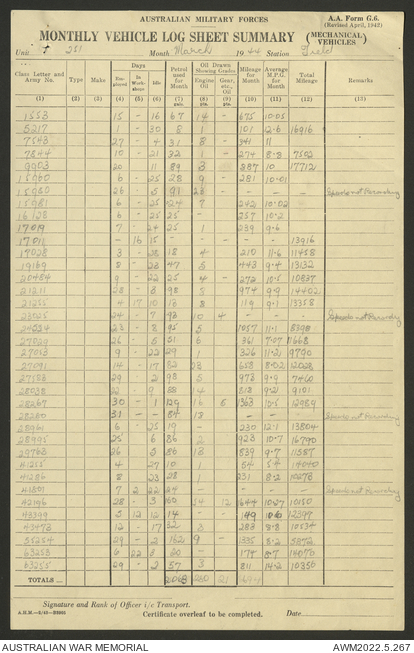 AUSTRALIAN MILITARY FORCES
A.A. Form G.6.
(Revised April, 1942)
MONTHLY VEHICLE LOG SHEET SUMMARY (MECHANICAL VEHICLES)
Unit 251 Month March 1944 Station Field
Class Letter and Army No. Type Make Days Petrol used for Month Oil Drawn Showing Grades Mileage for Month Average M.P.G. for Month Total Mileage Remarks
Employed In Workshops Idle Engine Oil Gear, etc., Oil
(1) (2) (3) (4) (5) (6) (7) (8) (9) (10) (11) (12) (13)
1553 15 - 16 67 14 - 675 10.05
5217 1 - 30 8 1 - 101 12.6 16916
7543 27 - 4 31 8 - 341 11
7544 10 - 21 32 1 - 274 8.8 7502
9903 20 - 11 89 3 - 887 10 17712
15060 6 - 25 28 9 - 281 10.01
15980 26 - 5 91 23 - Speedo not Recording
15981 6 - 25 24 7 242 10.02
16128 6 - 25 25 - 257 10.2
17019 7 - 24 25 1 239 9.6
17011 - 16 15 - - - - 13916
17028 3 - 28 18 4 210 11.6 11458
19169 8 - 23 47 5 443 9.4 13132
20484 9 - 22 25 4 - 272 10.5 10837
21211 28 - 3 98 8 974 9.9 14402
21255 4 17 10 13 8 119 9.1 13358
23025 24 - 7 93 10 4 - - - Speedo not Recording
24524 23 - 8 95 5 1057 11.1 8398
27029 26 - 5 51 6 361 7.07 11668
27053 9 - 22 29 1 326 11.21 9790
27091 14 - 17 82 23 658 8.02 12028
27583 29 - 2 98 5 973 9.9 7460
28038 22 - 9 88 4 812 9.21 9101
28267 30 - 1 129 16 5 1363 10.5 12989
28280 31 - - 84 18 - - - Speedo not Recording
28961 6 - 25 19 - 230 12.1 13804
28995 25 - 6 86 2 923 10.7 16790
29763 26 - 5 86 13 839 9.7 11587
41255 4 - 27 10 1 54 5.4 14040
41286 8 - 23 28 1 231 8.2 10273
41301 7 2 22 24 - - - - Speedo not Recording
42196 28 - 3 160 14 12 1644 10.27 10150
43399 5 12 12 14 - 149 10.6 12397
43473 12 - 17 32 3 283 8.8 10534
55254 29 - 2 162 9 - 1335 8.2 5872
63253 6 22 3 20 - - 174 8.7 14070
63255 29 - 2 57 3 811 14.2 10350
TOTALS 2068 260 21
Signature and Rank of Officer i/c Transport.
Certificate overleaf to be completed. Date
AUSTRALIAN WAR MEMORIAL AWM2022.5.267